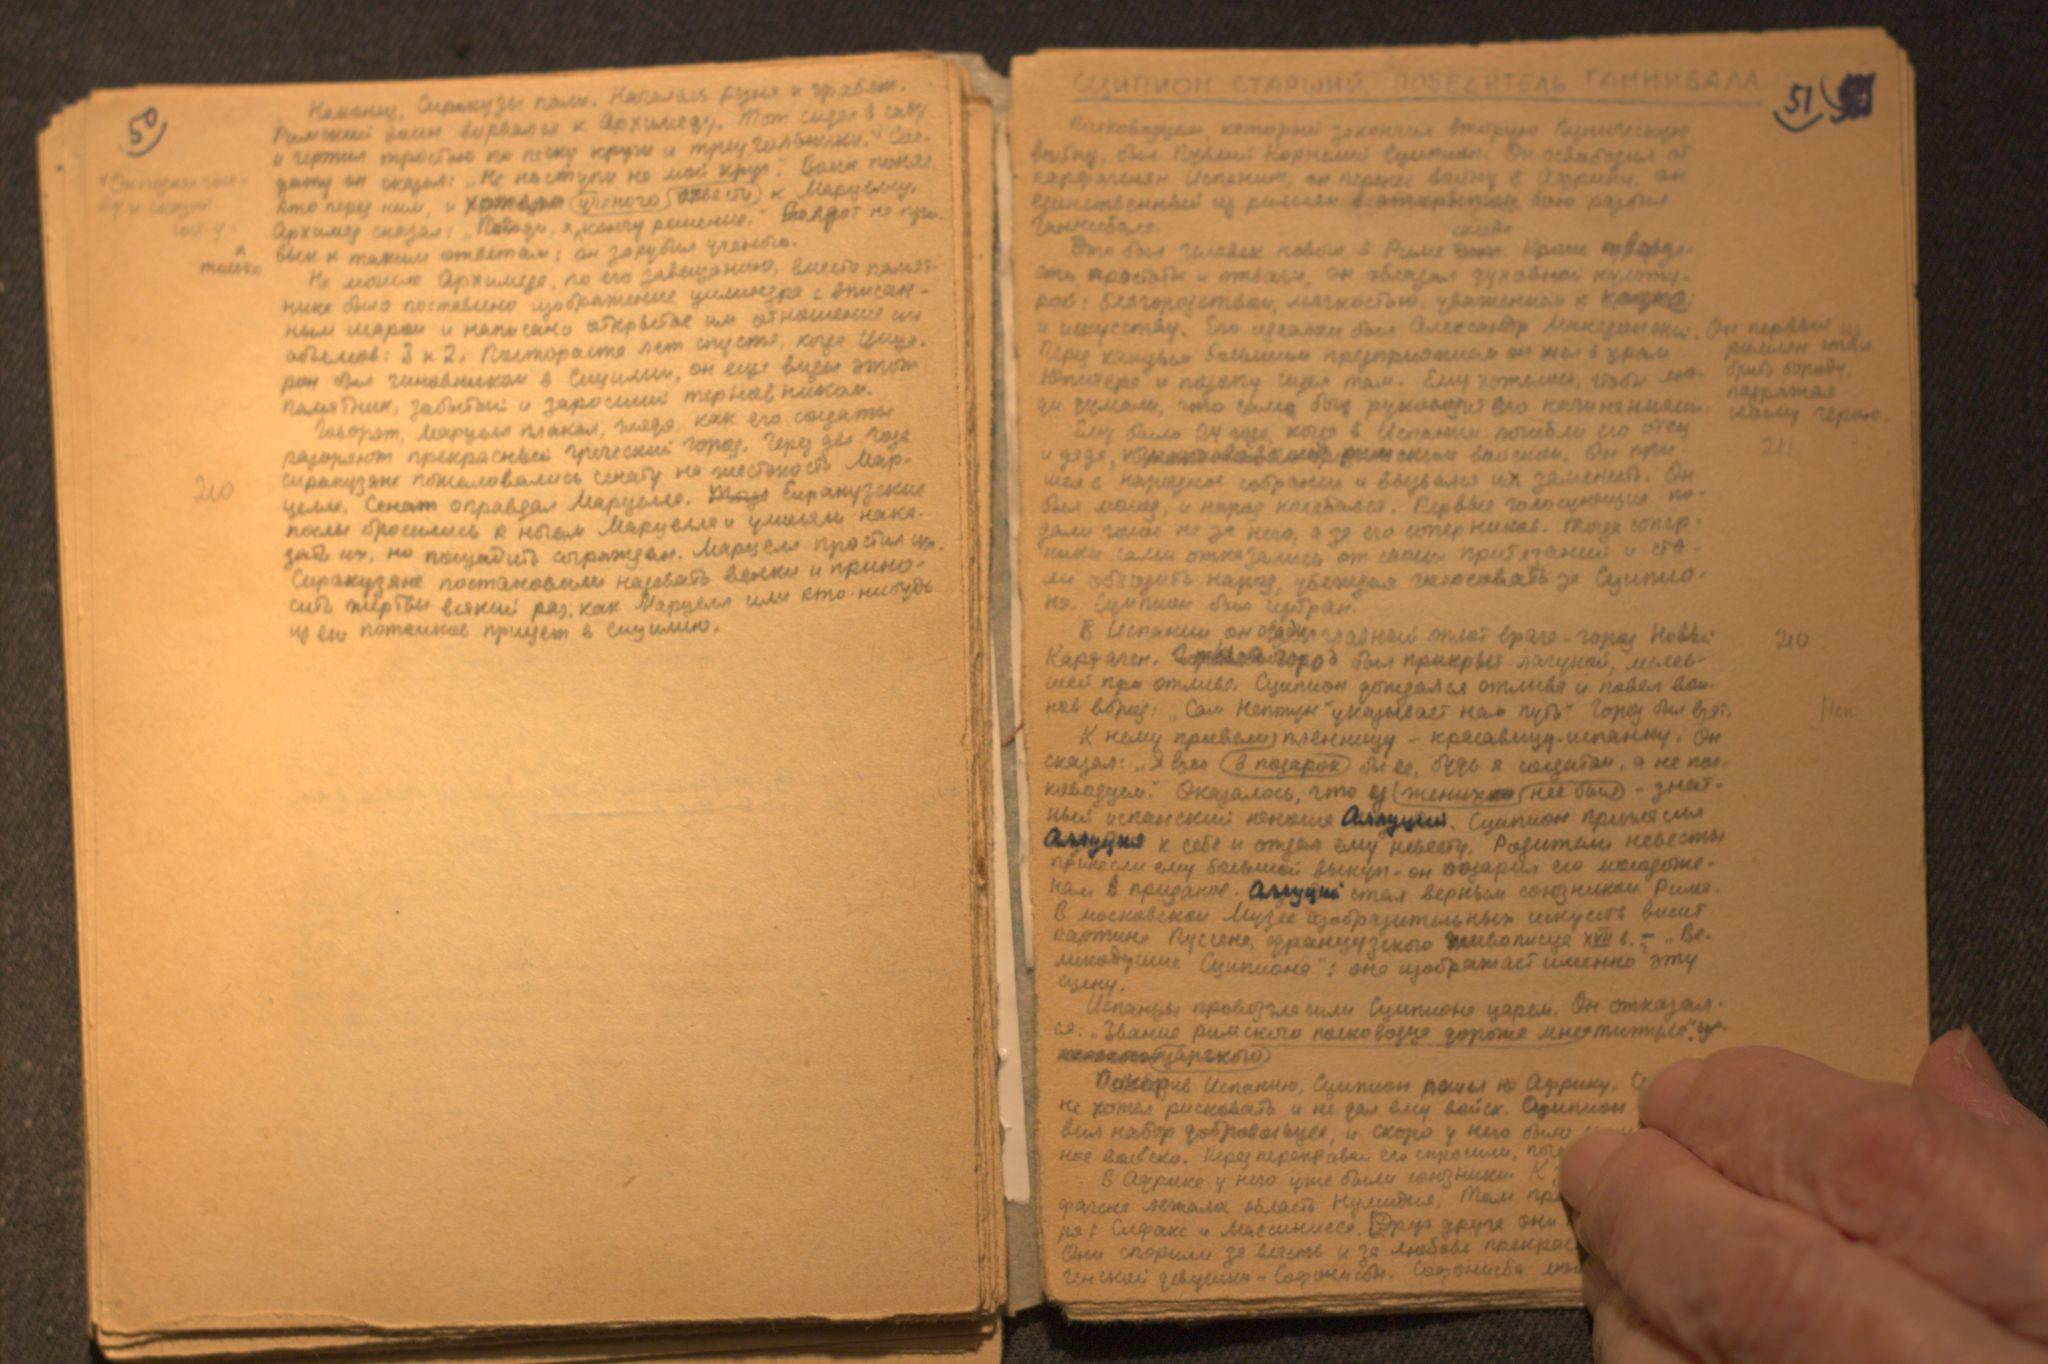 50
Наконец, Сиракузы пали. Начались резня и грабеж.
Римский воин ворвался к Архимеду. Тот сидел в саду
и чертил тростью по песку круги и треугольники. Сол-
дату он сказал: „Не наступи на мой круг". Воин понял
кто перед ним, и хотел ученого отвести к Марцеллу.
Архимед сказал: „Погоди, я кончу решение." Солдат не при-
вык к таким ответам: он зарубил ученого.
только
На могиле Архимеда, по его завещанию, вместо памят-
ника было поставлено изображение цилиндра с вписан-
ным шаром и написано открытое им отношение их
объемов: 3 к 2. Полтораста лет спустя, когда Цице-
рон был чиновником в Сицилии, он еще видел этот
памятник, забытый и заросший терновником.
Говорят, Марцелл плакал, глядя, как его солдаты
разоряют прекрасный греческий город. Через два года
сиракузяне пожаловались сенату на жестокость Мар-
целла. Сенат оправдал Марцелла. Сиракузские
послы бросились к ногам Марцелла и умоляли нака-
зать их, но пощадить сограждан. Марцелл простил их.
Сиракузяне постановили надевать венки и прино-
сить жертвы всякий раз, как Марцелл или кто-нибудь
из его потомков придет в Сицилию.
210
СЦИПИОН СТАРШИЙ, ПОБЕДИТЕЛЬ ГАННИБАЛА
51
Полководцем, который закончил вторую Пуническую
войну, был Публий Корнелий Сципион. Он освободил от
карфагенян Испанию, он перенес войну в Африку, он
единственный из римлян в открытом бою разбил
Ганнибала.
Это был человек нового в Риме склада. Кроме твердо-
сти, простоты и отваги, он обладал духовной культу-
рой: благородством, мягкостью, уважением к науке
и искусству. Его идеалом был Александр Македонский.
Он первым из
римлян стал
брить бороду,
подражая
своему герою.
Перед каждым большим предприятием он шел в храм
Юпитера и подолгу сидел там. Ему хотелось, чтобы лю-
ди думали, что сами боги руководят его начинаниями.
211
Ему было 24 года, когда в Испании погибли его отец
и дядя, командовавшие римским войском. Он при-
шел в народное собрание и вызвался их заменить. Он
был молод, и народ колебался. Первые голосующие по-
дали голос не за него, а за его соперников. Тогда сопер-
ники сами отказались от своих притязаний и ста-
ли обходить народ, убеждая голосовать за Сципио-
на. Сципион был избран.
В Испании он осадил главный оплот врага - город Новый
210
Карфаген. Город был прикрыт лагуной, мелев-
шей при отливе. Сципион дождался отлива и повел вои-
нов вброд: „Сам Нептун указывает нам путь" Город был взят.
Неп
К нему привели пленницу - красавицу-испанку. Он
сказал: „Я взял в подарок бы ее, будь я солдатом, а не пол-
ководцем." Оказалось, что у нее был жених - знат-
ный испанский юноша Аллуций. Сципион пригласил
Аллуция к себе и отдал ему невесту. Родители невесты
принесли ему большой выкуп - он подарил его молодоже-
нам в приданое. Аллуций стал верным союзником Рима.
В московском Музее изобразительных искусств висит
картина Пуссена, французского живописца XVII в. - „Ве-
ликодушие Сципиона": она изображает именно эту
сцену.
Испанцы провозгласили Сципиона царем. Он отказал-
ся: „Звание римского полководца дороже мне титула"
царского
Покорив Испанию, Сципион пошел на Африку.
не хотел рисковать и не дал ему войск. Сципион
вил набор добровольцев, и скоро у него было
ное войско. Перед переправой его спросили,
В Африке у него уже были союзники. К
фагена лежала область Нумидия. Там
ря: Сифакс и Массинисса. Друг друга они
Они спорили за власть и за любовь
генской девушки - Софонисбы. Софонисба